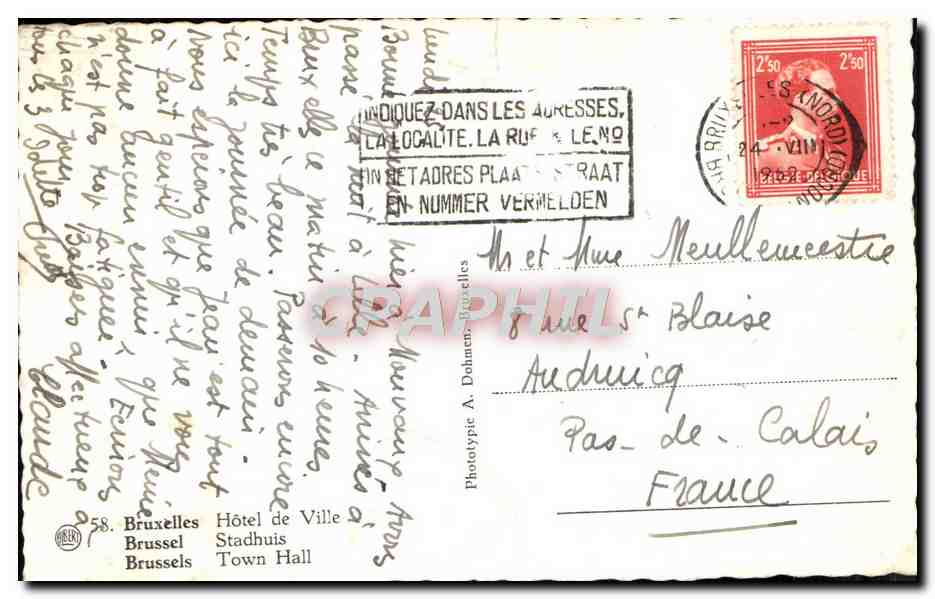 Bonne hier à Mouvaux Avons
passé la nuit à Lille. Arrivés à
Bruxelles ce matin à 10 heures
Temps très beau. Passerons encore
ici la journée de demain.
Nous espérons que Jean est tout
à fait gentil et qu'il ne vous
donne aucun ennui que Mémé
n'est pas trop fatiguée. Ecrivons
chaque jour. Baisers affectueux à
tous les 3
Claude
INDIQUEZ DANS LES ADRESSES,
LA LOCALITE. LA RUE & LE No
IN HET ADRES PLAATS STRAAT
EN NUMMER VERMELDEN
2F50 2F50
BELGIE-BELGIQUE
(NORD)
24 VIII
Mr et Mme Meullemeestre
8 rue St Blaise
Audruicq
Pas-de-Calais
France
Phototypie A. Dohmen, Bruxelles
CPARAMA
58. Bruxelles Hôtel de Ville
Brussel Stadhuis
Brussels Town Hall